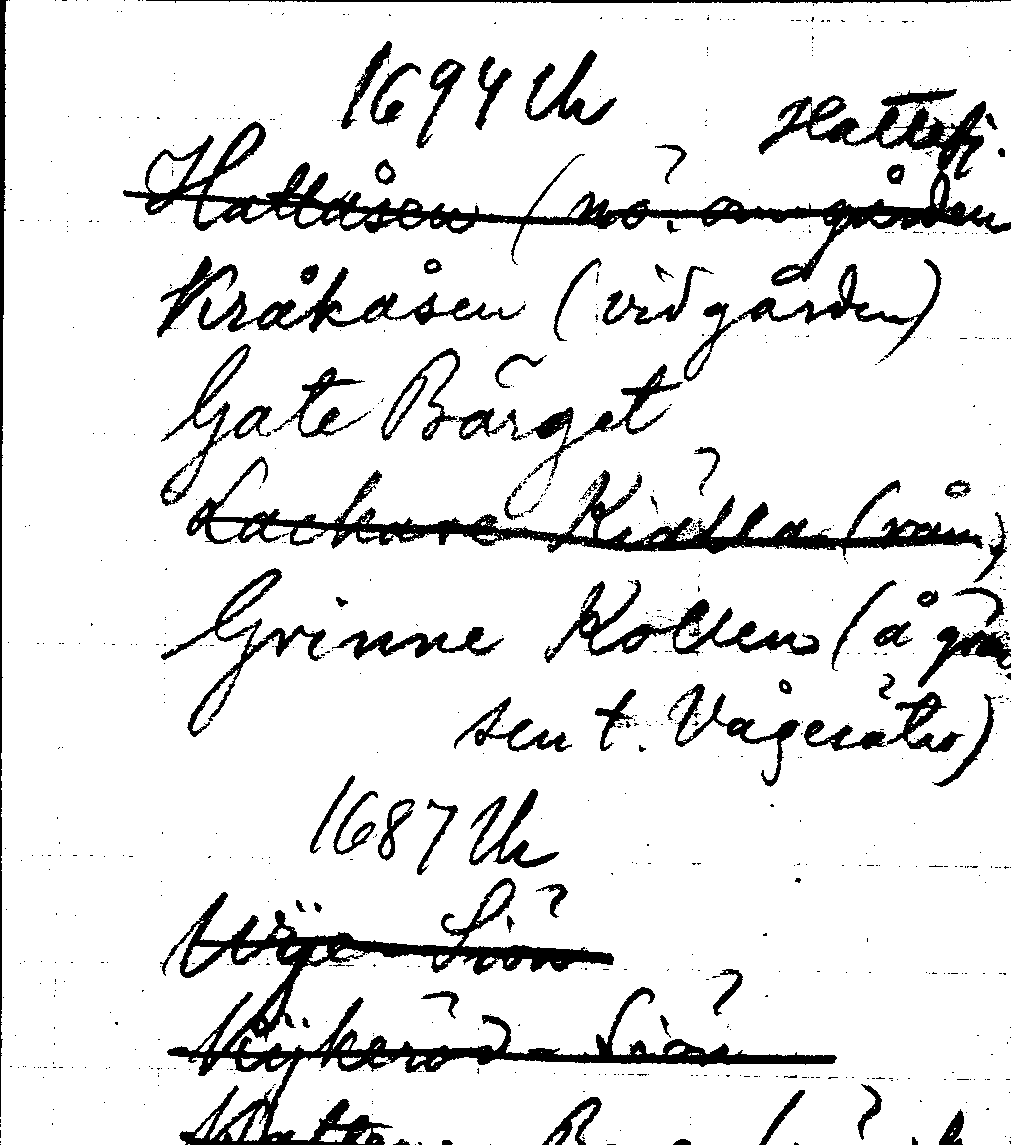 1694 Uk
Hattefj.
Hattåsen (nö. om gården
Kråkåsen (vid gården)
Gate Bärget
Lackare Kiälla (
Grinne Kollen (å grän
sen t. Vågesäter)
1687 Uk
Wÿe Siön
Rÿkeröd - Siön